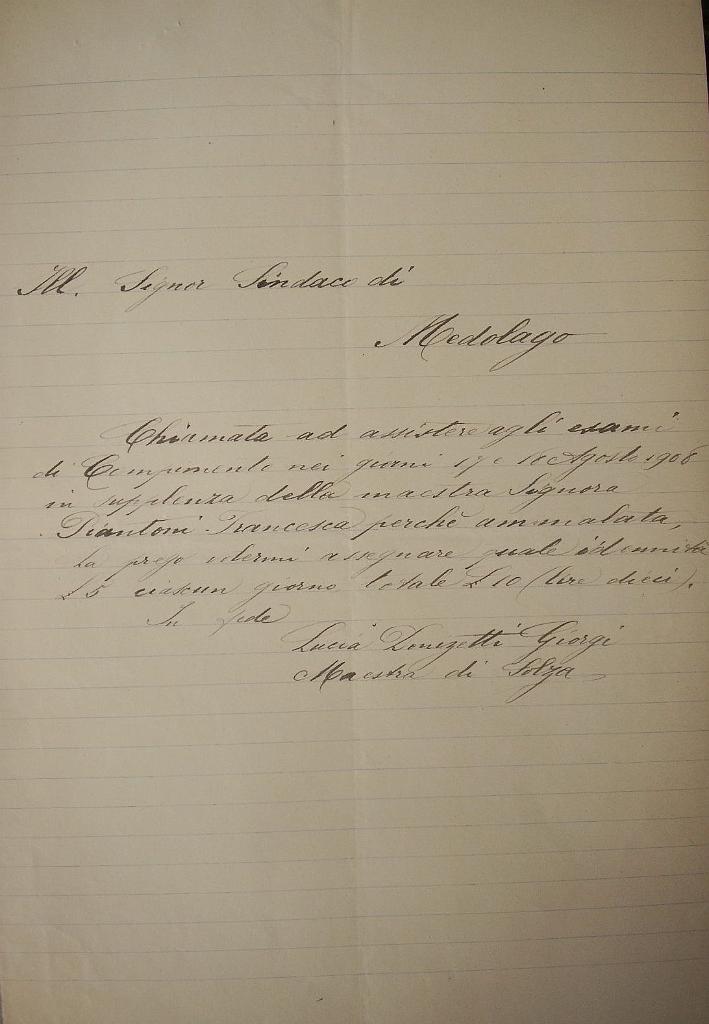 Ill. Signor Sindaco di
Medolago
Chiamata ad assistere agli esami
di Compimento nei giorni 17 e 18 Agosto 1908
in supplenza della maestra Signora
Piantoni Francesca perchè ammalata,
La prego assegnare quale idennità
L 5 ciascun giorno totale L 10 (lire dieci).
In fede
Lucia Donizetti Giorgi
Maestra di Solza